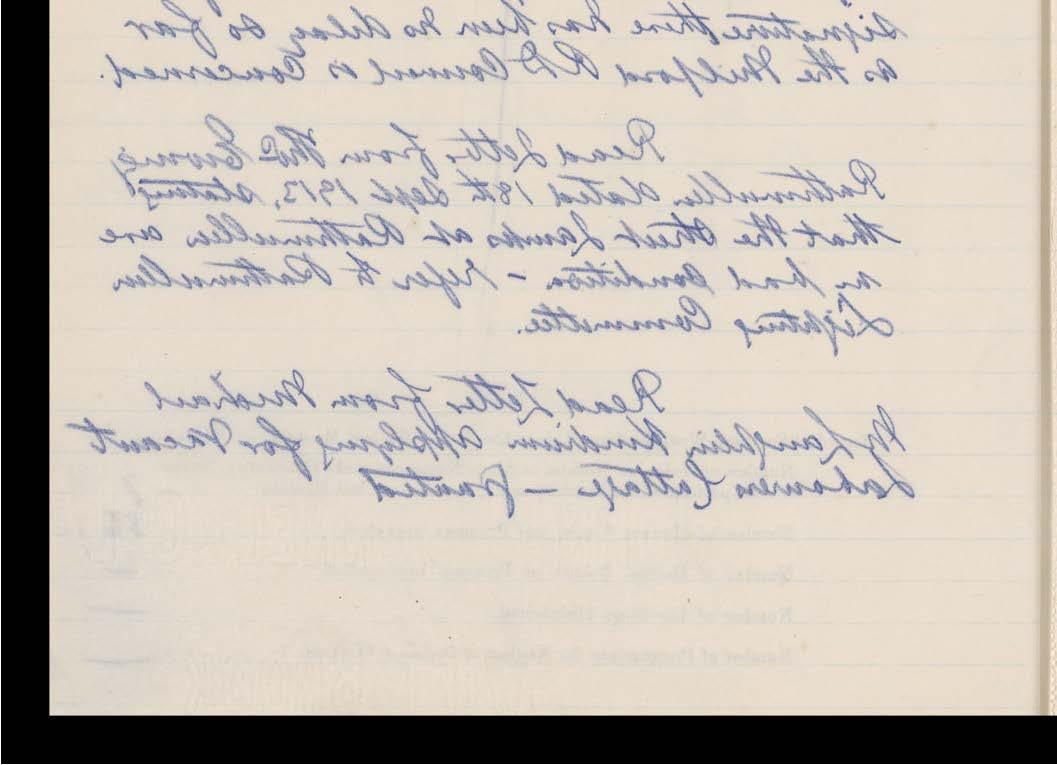 signature there has been no delay so far
as the Milford R D Council is concerned.
Read Letter from Thos
Rathmullen dated 18th Sept 1913, stating
that the Street Lamps at Rathmullen are
in bad condition – refer to Rathmullen
Lighting Committee.
Read Letter from Michael
McLaughlin Kindrum applying for vacant
Labourers Cottage – granted
Number of
Number of
Number of